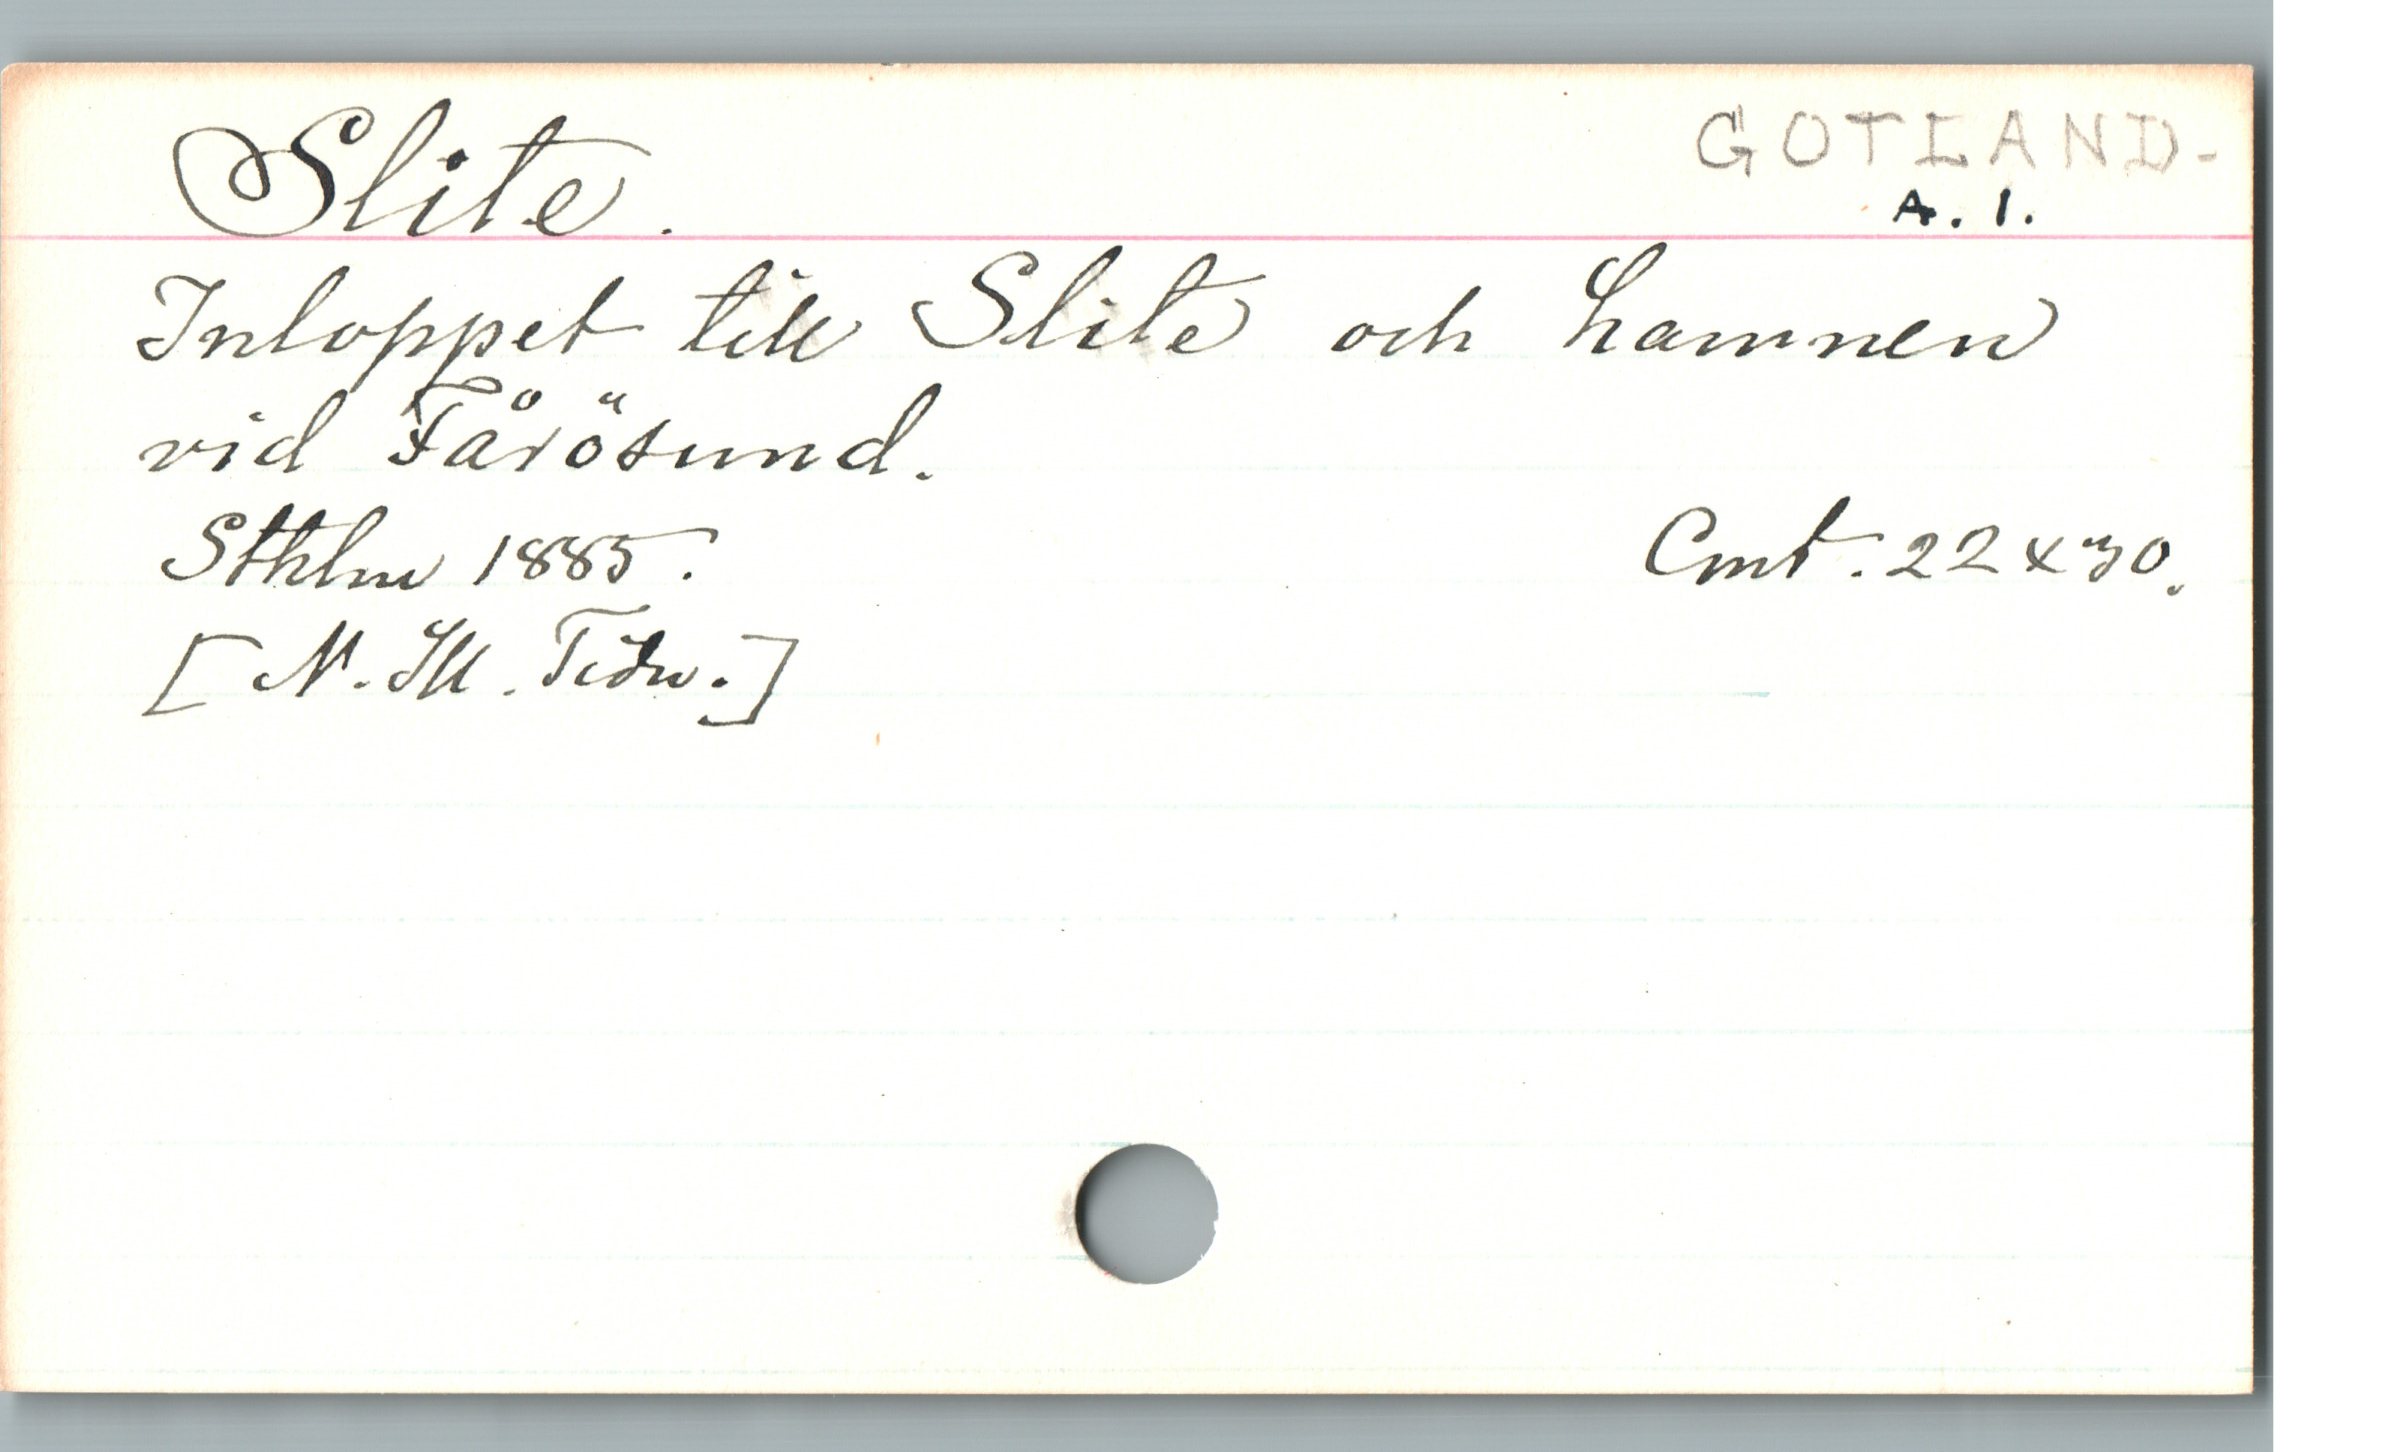 Slite.
GOTLAND-
A. 1.
Inloppet till Slite och hamnen
vid Fårösund.
Sthlm 1885. Cmt. 22 x 30.
[N. Ill. Tidn.]